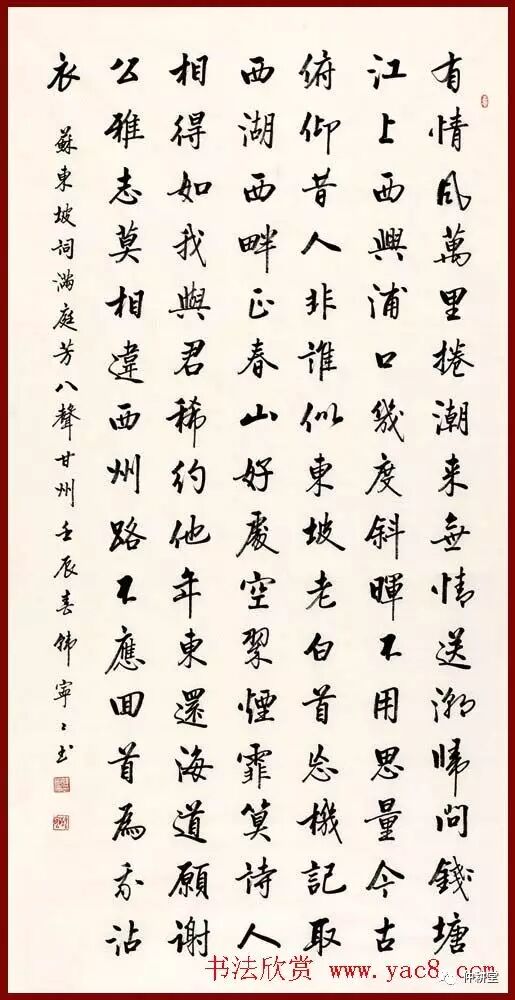 有情风萬里捲潮来無情送潮歸问錢塘
江上西興浦口幾度斜暉不用思量今古
俯仰昔人非誰似東坡老白首忘機記取
西湖西畔正春山好處空翠煙霏算詩人
相得如我與君稀約他年東還海道願謝
公雅志莫相違西州路不應回首為我沾
衣
蘇東坡词满庭芳八聲甘州壬辰春韩寧〻书
书法欣赏 www.yac8.com
仲耕堂